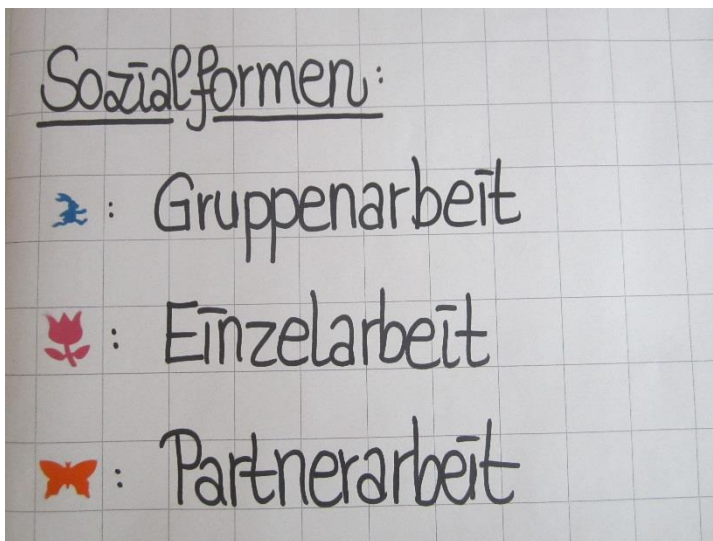 Sozialformen:
: Gruppenarbeit
: Einzelarbeit
: Partnerarbeit